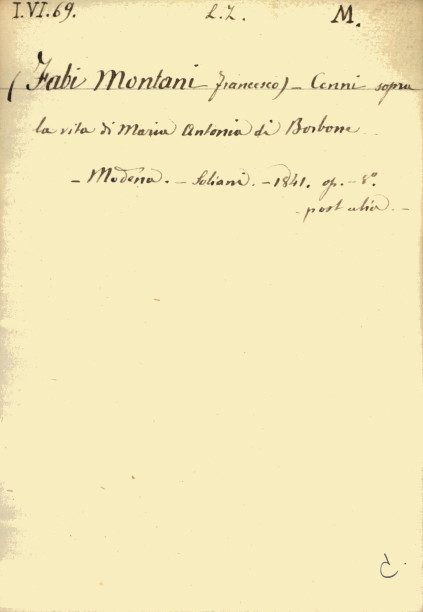 I.VI.69. L.L. M.
(Fabi Montani Francesco) - Cenni sopra
la vita di Maria Antonia di Borbone
- Modena. - Soliani. - 1841. op. - 8º.
- post alia. -
C.